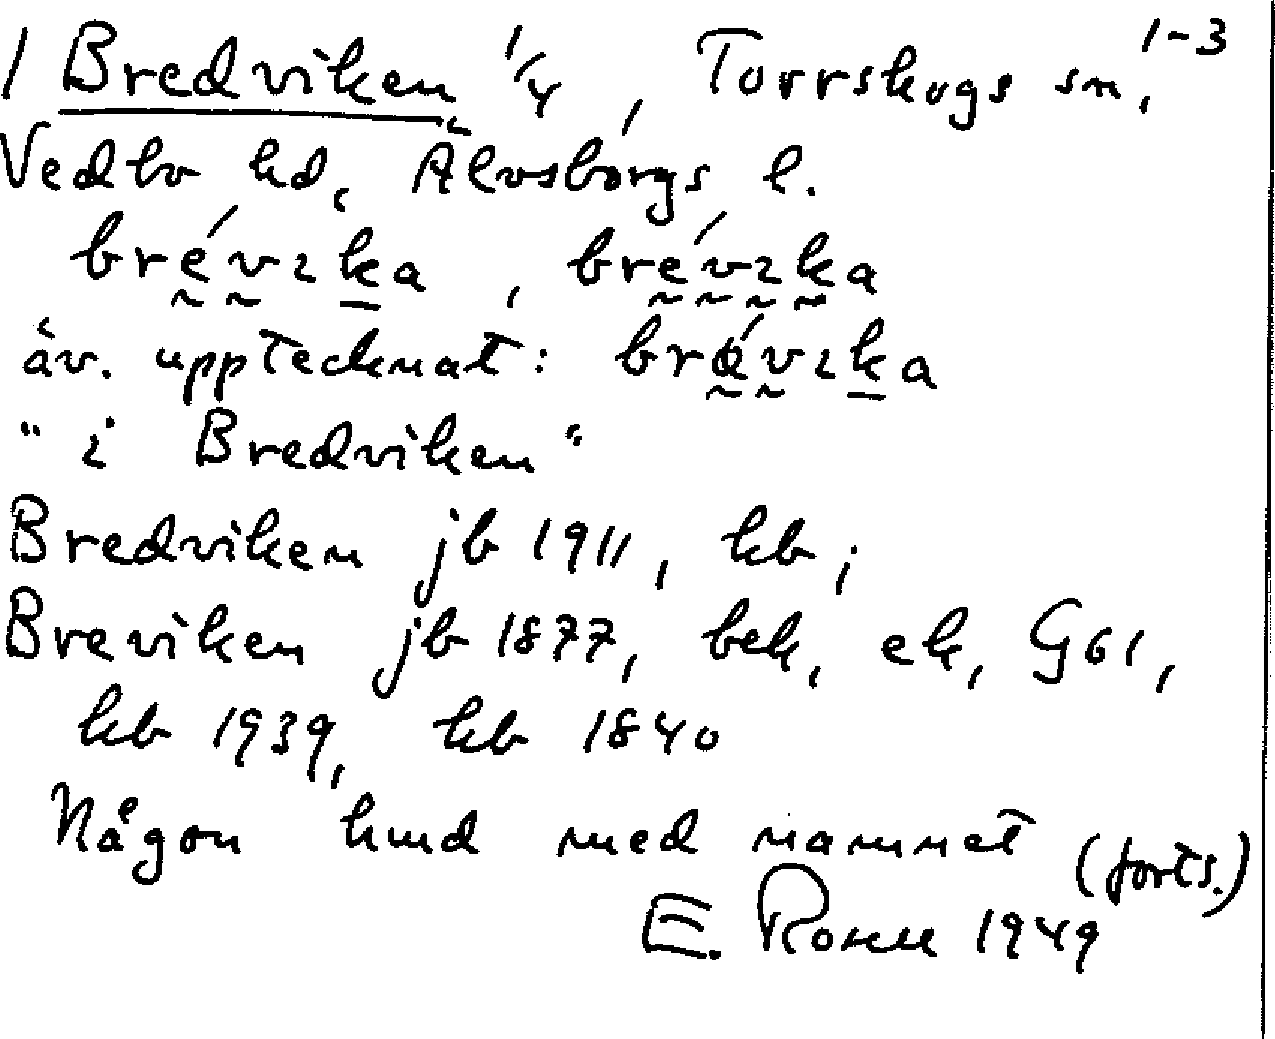 1 Bredviken 1/4, Torrskogs sn, 1-3
Vedbo hd, Älvsborgs l.
brévıka, brévıka
äv. upptecknat: brǿvıka
"i Bredviken"
Bredviken jb 1911, kb;
Breviken jb 1877, bek, ek, G61,
kb 1939, kb 1840
Någon kmd med namnet (forts.)
E. Rosell 1949